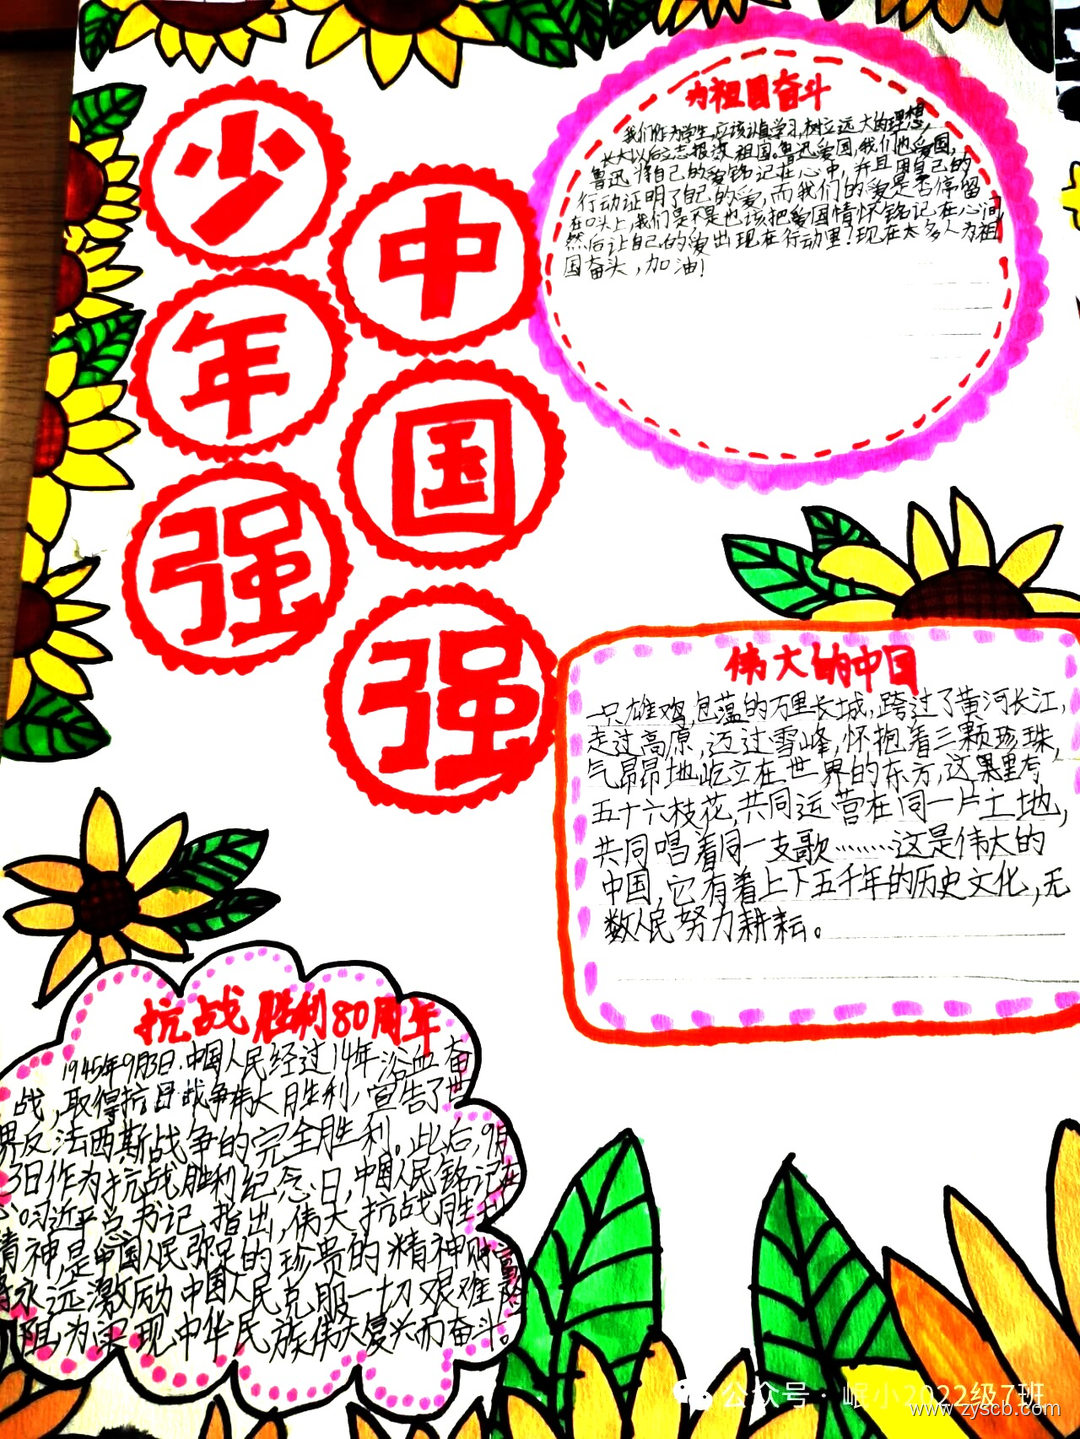 少年强
中国强
为祖国奋斗
我们作为学生,应该认真学习,树立远大的理想,
长大以后立志报效祖国。鲁迅爱国,我们也爱国,
鲁迅将自己的爱铭记在心中,并且用自己的
行动证明了自己的爱,而我们的爱是否停留
在口头上,我们是不是也该把爱国情怀铭记在心间
然后让自己的爱出现在行动里!现在太多人为祖
国奋头,加油!
伟大的中国
一只雄鸡,包蕴的万里长城,跨过了黄河长江,
走过高原,迈过雪峰,怀抱着三颗珍珠,
气昂昂地屹立在世界的东方,这里有
五十六枝花,共同运营在同一片土地,
共同唱着同一支歌………这是伟大的
中国,它有着上下五千年的历史文化,无
数人民努力耕耘。
抗战胜利80周年
1945年9月3日.中国人民经过14年浴血奋
战,取得抗日战争伟大胜利,宣告了世
界反法西斯战争的完全胜利。此后,9月
3日作为抗战胜利纪念日,中国人民铭记在
心。习近平总书记指出,伟大抗战胜利
精神,是中国人民弥足的珍贵的精神财
将永远激励中国人民克服一切艰难险
阻为实现中华民族伟大复兴而奋斗。
公众号·岷小2022级7班
www.zyscb.com